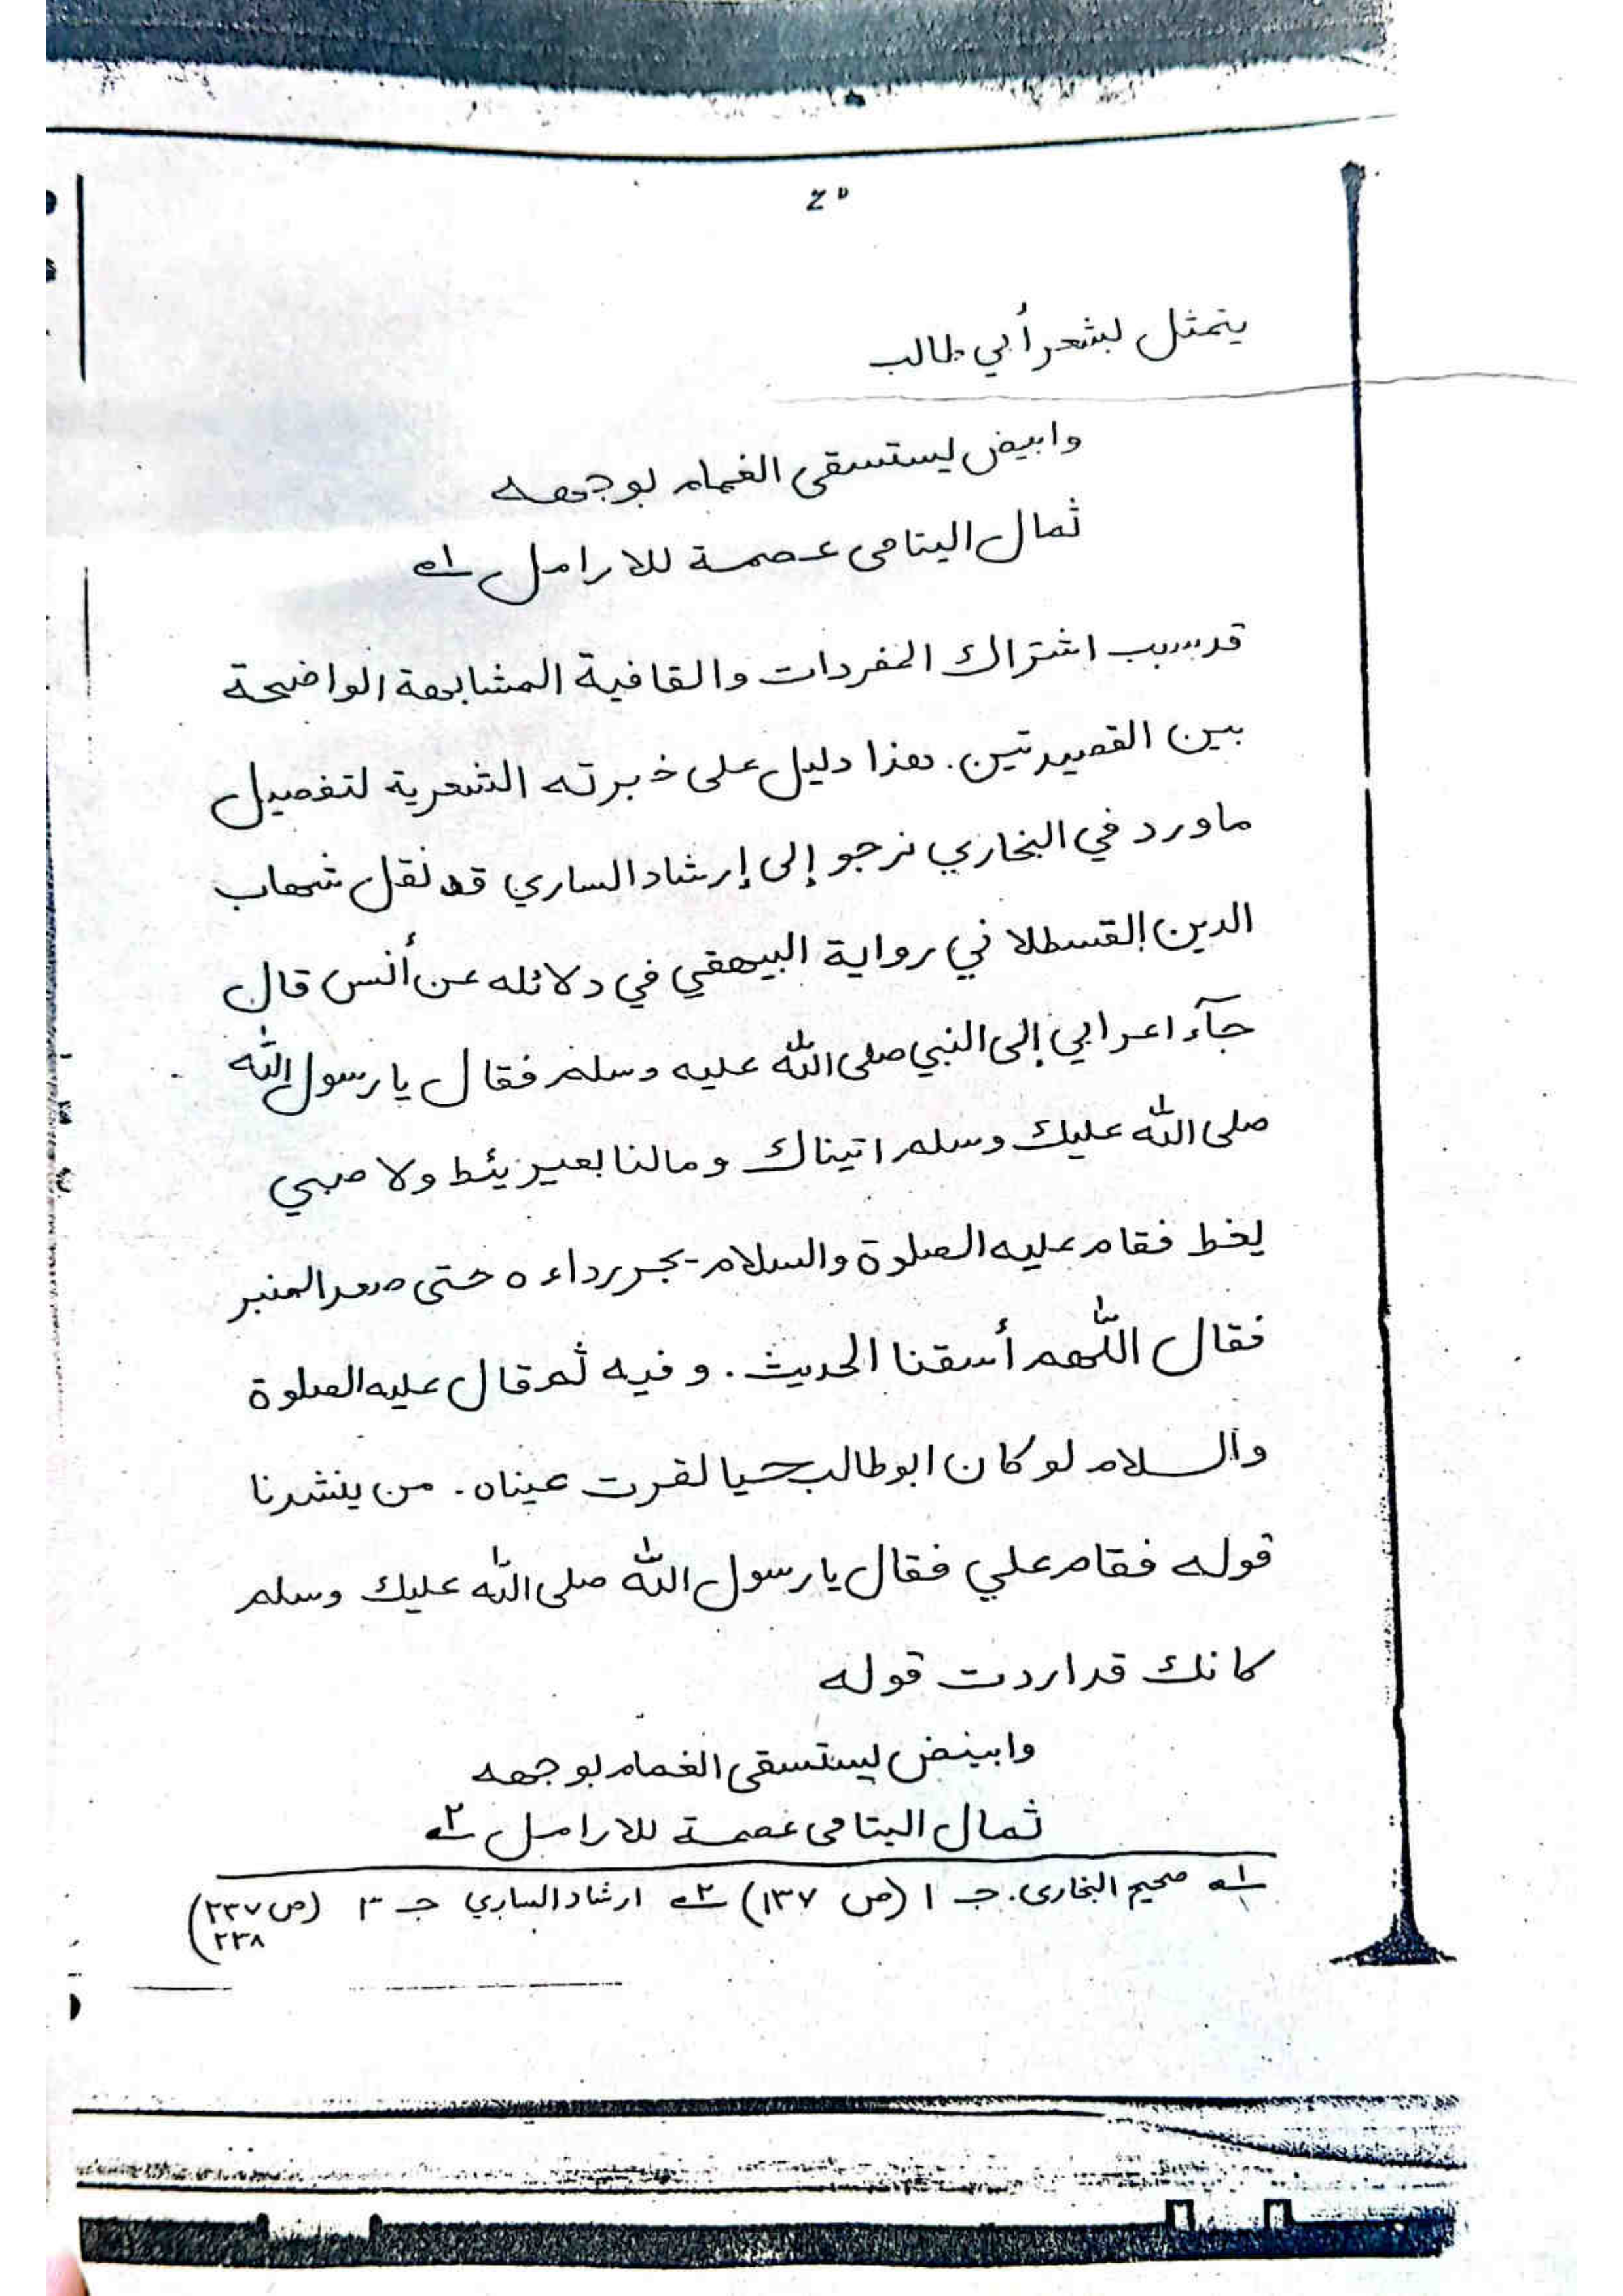 يتمثل بشعر أبي طالب
وابيض يستسقى الغمام بوجهه
ثمال اليتامى عصمة للارامل ١ـه
قد سبب اشتراك المفردات والقافية المشابهة الواضحة
بين القصيدتين. هذا دليل على خبرته الشعرية لتفصيل
ما ورد في البخاري نرجو إلى إرشاد الساري قد نقل شهاب
الدين القسطلاني رواية البيهقي في دلائله عن أنس قال
جآء اعرابي إلى النبي صلى الله عليه وسلم فقال يا رسول الله
صلى الله عليك وسلم اتيناك ومالنا بعير يئط ولا صبي
يغط فقام عليه الصلوة والسلام يجر رداءه حتى صعد المنبر
فقال اللهم أسقنا الحديث. وفيه ثم قال عليه الصلوة
والسلام لو كان ابو طالب حيا لقرت عيناه. من ينشدنا
قوله فقام علي فقال يا رسول الله صلى الله عليك وسلم
كانك قد اردت قوله
وابيض يستسقى الغمام بوجهه
ثمال اليتامى عصمة للارامل ٢ـه
١ـه صحيح البخارى. جـ ١ (ص ١٣٧) ٢ـه ارشاد الساري جـ ٣ (ص ٢٣٧
٢٣٨)